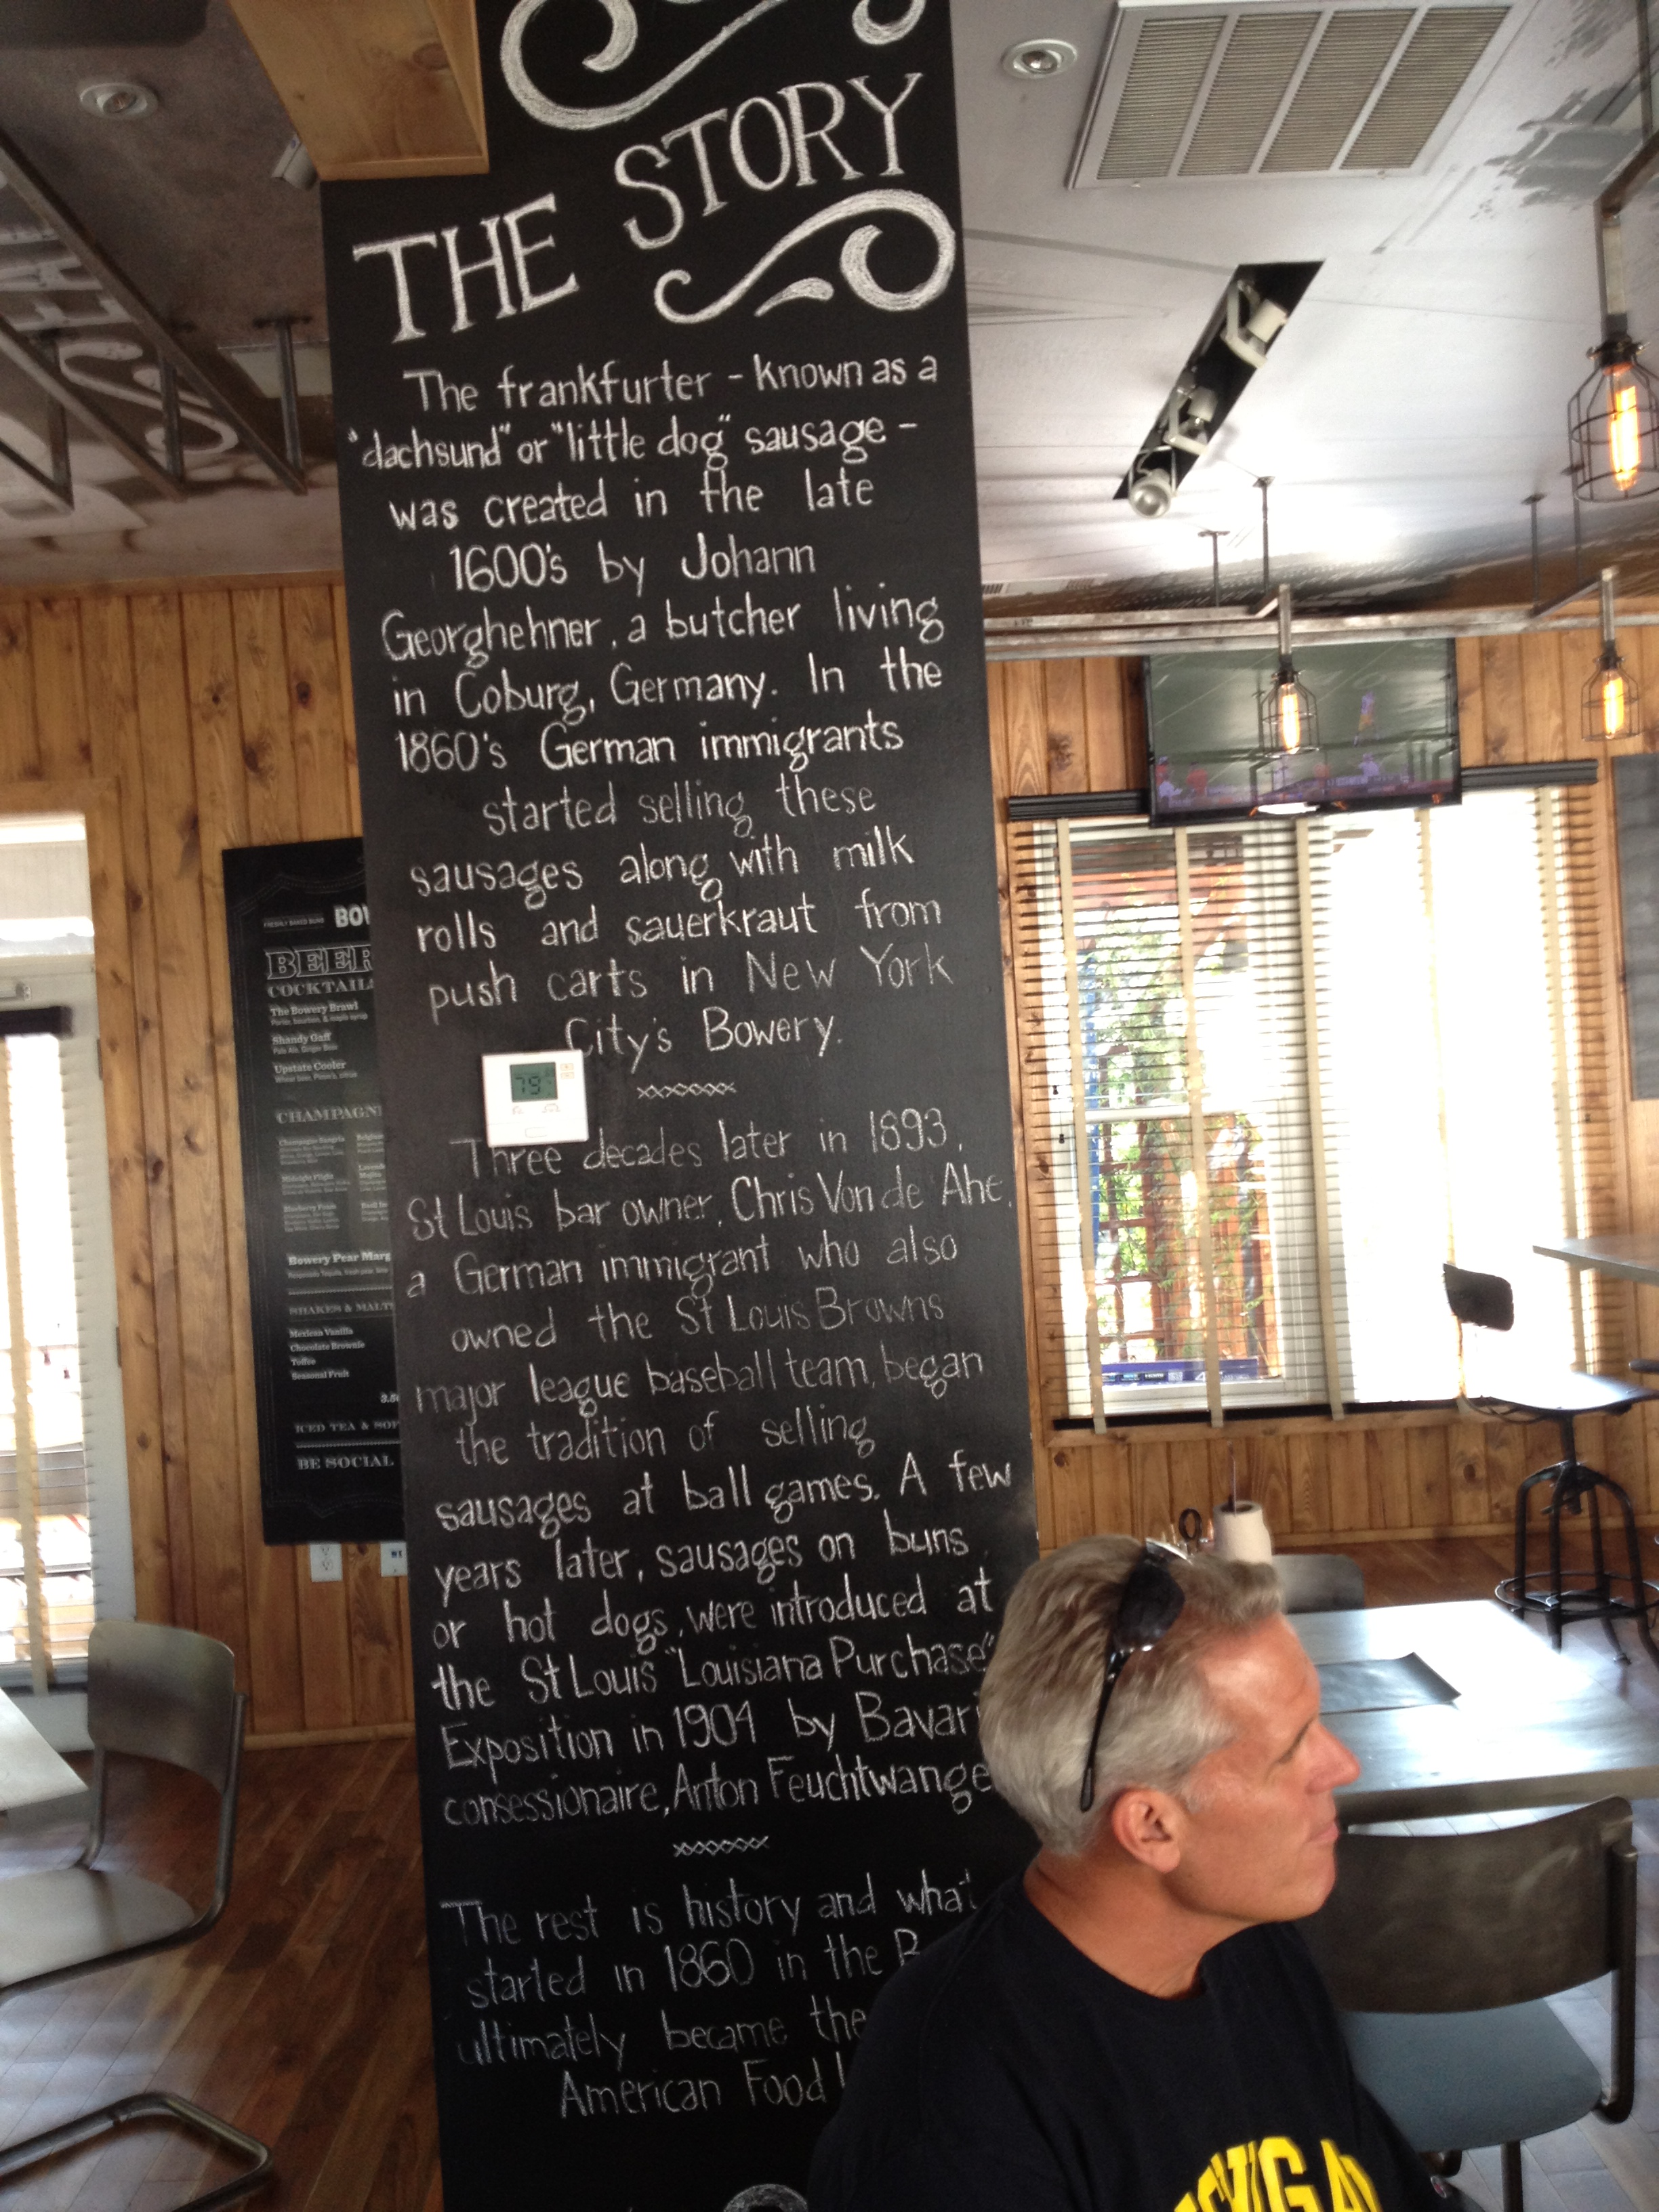 THE STORY
The frankfurter - known as a
"dachsund" or "little dog" sausage -
was created in the late
1600's by Johann
Georghehner, a butcher living
in Coburg, Germany. In the
1860's German immigrants
started selling these
sausages along with milk
rolls and sauerkraut from
push carts in New York
City's Bowery.
xxxxxxx
79
Three decades later in 1893,
St Louis bar owner, Chris Von de Ahe,
a German immigrant who also
owned the St Louis Browns
major league baseball team, began
the tradition of selling
sausages at ball games. A few
years later, sausages on buns,
or hot dogs, were introduced at
the St Louis "Louisiana Purchase"
Exposition in 1904 by Bavari
consessionaire, Anton Feuchtwange
xxxxxxx
The rest is history and what
started in 1860 in the B
ultimately became the
American Food
FRESHLY BAKED BUNS BOW
BEER
COCKTAILS
The Bowery Brawl
Porter, bourbon, & maple syrup
Shandy Gaff
Pale Ale, Ginger Beer
Upstate Cooler
CHAMPAGN
Champagne Sangria
Midnight Flight
Blueberry
Bowery Pear Marg
SHAKES & MALT
Mexican Vanilla
Chocolate Brownie
Toffee
Seasonal Fruit
ICED TEA & SOF
BE SOCIAL
CHIGA